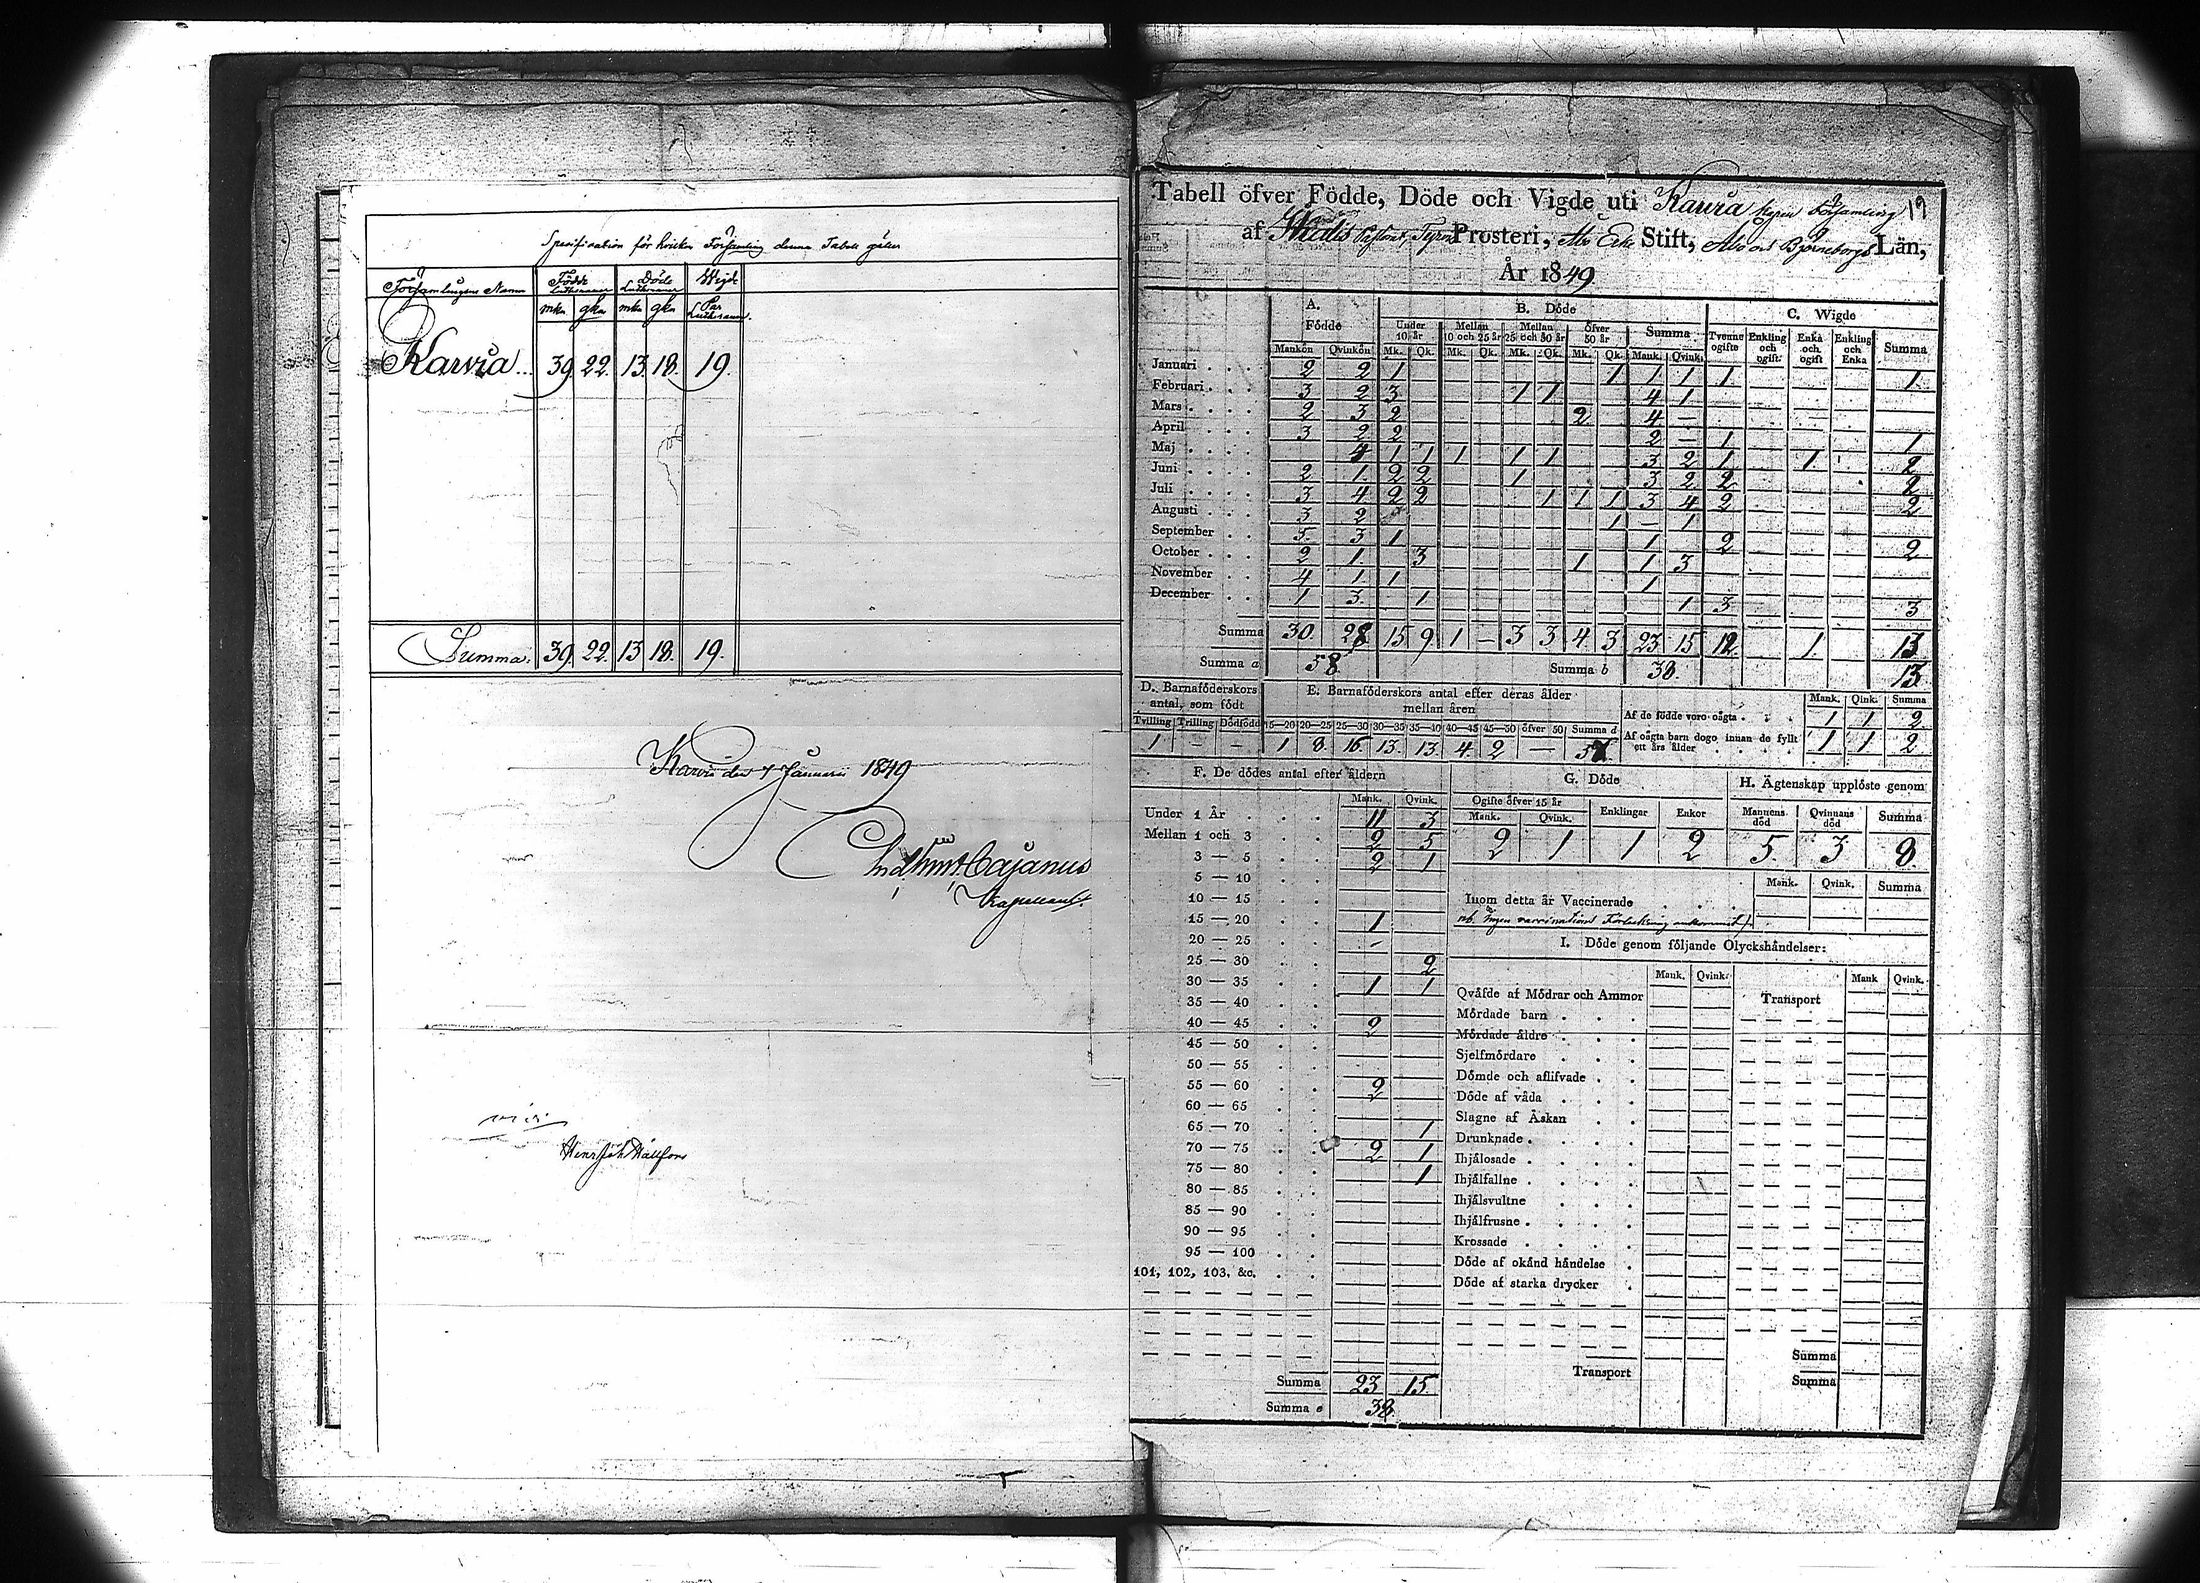 Specifikation för hvilken Församling denna Tabell gäller
Församlingens Namn Födde Lutheraner Döde Lutheraner Wigde
mkn qkn mkn qkn Par Lutheraner.
Karvia .. 39 22. 13. 18. 19.
Summa. 39. 22. 13 18. 19.
Karvia den 7 Januarii 1849
Cajanus
Kapellan
19
Tabell öfver Födde, Döde och Vigde uti Karvia Församling
af Prosteri, Åbo Erke Stift, Åbo och Björneborgs Län,
År 1849
A. Födde B. Döde C. Wigde
Under 10 år Mellan 10 och 25 år Mellan 25 och 50 år Öfver 50 år Summa Tvenne ogifte Enkling och ogift Enka och ogift Enkling och Enka Summa
Mankön Qvinkön Mk. Qk. Mk. Qk. Mk. Qk. Mk. Qk. Mank. Qvink.
Januari . . . . 2 2 1 1 1 1 1 1
Februari . . . 3 2 3 1 1 4 1
Mars . . . . 2 3 2 2 4 —
April . . . . 3 2 2 2 — 1 1
Maj . . . . 4 1 1 1 1 1 3 2 1 1 2
Juni . . . . 2 1. 2 2 1 3 2 2 2
Juli . . . . 3 4 2 2 1 1 1 3 4 2 2
Augusti . . . 3 2 1 — 1
September . . 5 3 1 1 2 2
October . . . 2 1. 3 1 1 3
November . . 4 1 1 1
December . . 1 3. 1 1 3 3
Summa 30. 28 15 9 1 — 3 3 4 3 23 15 12 1. 13
Summa a 58 Summa b 38. 13.
D. Barnaföderskors antal, som födt
Tvilling Trilling Dödfödd
1 — —
E. Barnaföderskors antal efter deras ålder mellan åren
15—20 20—25 25—30 30—35 35—40 40—45 45—50 öfver 50 Summa d
1 8. 16 13. 13. 4. 2 — 57.
Mank. Qink. Summa
Af de födde voro oägta . . . 1 1 2
Af oägta barn dogo innan de fyllt ett års ålder . . . . 1 1 2
F. De dödes antal efter åldern
Mank. Qvink.
Under 1 År . . . 11 3
Mellan 1 och 3 . . 2 5
3 — 5 . . 2 1
5 — 10 . .
10 — 15 . .
15 — 20 . . 1
20 — 25 . . -
25 — 30 . . 2
30 — 35 . . 1 1
35 — 40 . .
40 — 45 . . 2
45 — 50 . .
50 — 55 . .
55 — 60 . . 2
60 — 65 . .
65 — 70 . . 1
70 — 75 . . 2 1
75 — 80 . . 1
80 — 85 . .
85 — 90 . .
90 — 95 . .
95 — 100 . .
101, 102, 103, &c. . .
Summa 23 15
Summa e 38.
G. Döde
Ogifte öfver 15 år Enklingar Enkor
Mank. Qvink.
2 1 1 2
H. Ägtenskap upplöste genom
Mannens död Qvinnans död Summa
5. 3 8.
Mank. Qvink. Summa
Inom detta år Vaccinerade . . . .
nb. Ingen vaccinations Förteckning ankommit
I. Döde genom följande Olyckshändelser:
Mank. Qvink. Mank Qvink.
Qväfde af Mödrar och Ammor Transport
Mördade barn . . .
Mördade äldre . . .
Sjelfmördare . . .
Dömde och aflifvade . .
Döde af våda . . .
Slagne af Åskan . .
Drunknade . . . .
Ihjälosade . . . .
Ihjälfallne . . . .
Ihjälsvultne . . .
Ihjälfrusne . . . .
Krossade . . . .
Döde af okänd händelse .
Döde af starka drycker .
Summa
Transport Summa